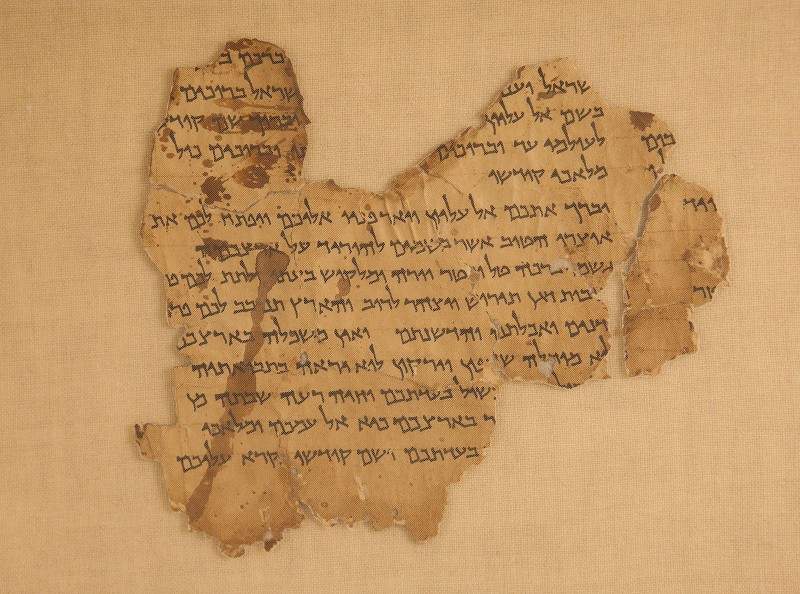 ברכם ב
שראל וענ שראל ברוכים
בשם אל עליון וברוך שם קוד
לעולמי עד וברוכים וברוכים כול
מלאכי קודשו
יברך אתכם אל עליון ויאר פניו אליכם ויפתח לכם את
אוצרו הטוב אשר בשמים להוריד על ארצכם
גשמי ברכה טל ומטר יורה ומלקוש בעתו לתת לכם פ
בות דגן תירוש ויצהר לרוב והארץ תנובב לכם פרי
דנים ואכלתם והדשנתם ואין משכלה בארצכם
לא מוחלה שדפון וירקון לוא יראה בתבואתיה
שול בעדתכם וחיה רעה שבתה מן
ר בארצכם כיא אל עמכם ומלאכי
בעדתכם ושם קודשו נקרא עליכם